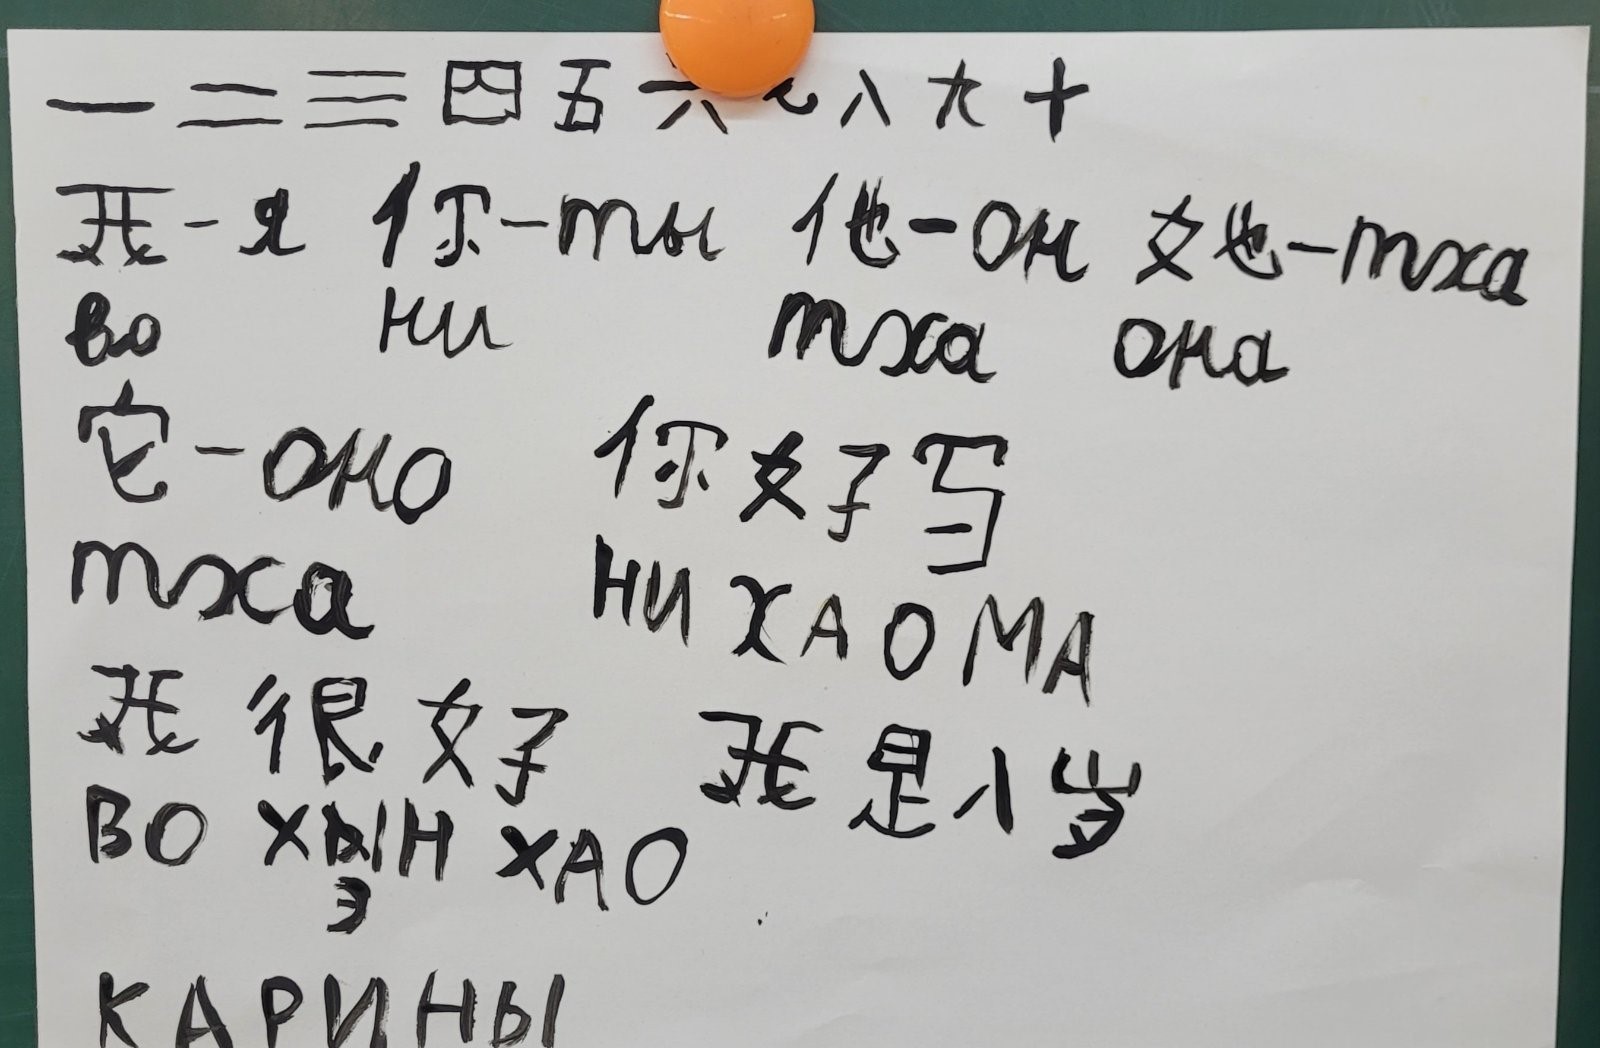 一 二 三 四 五 六 七 八 九 十
我 - я 你 - ты 他 - он 她 - тха
во ни тха она
它 - оно 你 好 吗
тха НИ ХАО МА
我 很 好 我 是 八 岁
ВО ХЫН ХАО
Э
КАРИНЫ